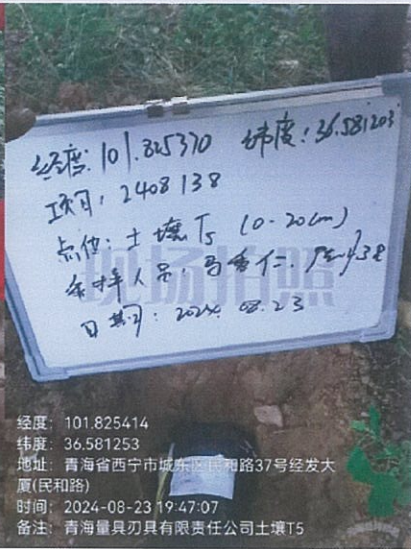 经度:101.825370 纬度:36.581203
项目:2408138
点位:土壤T5 (0-20cm)
采样人员:马秀仁
日期:2024.08.23
现场拍照
经度:101.825414
纬度:36.581253
地址:青海省西宁市城东区民和路37号经发大
厦(民和路)
时间:2024-08-23 19:47:07
备注:青海量具刃具有限责任公司土壤T5